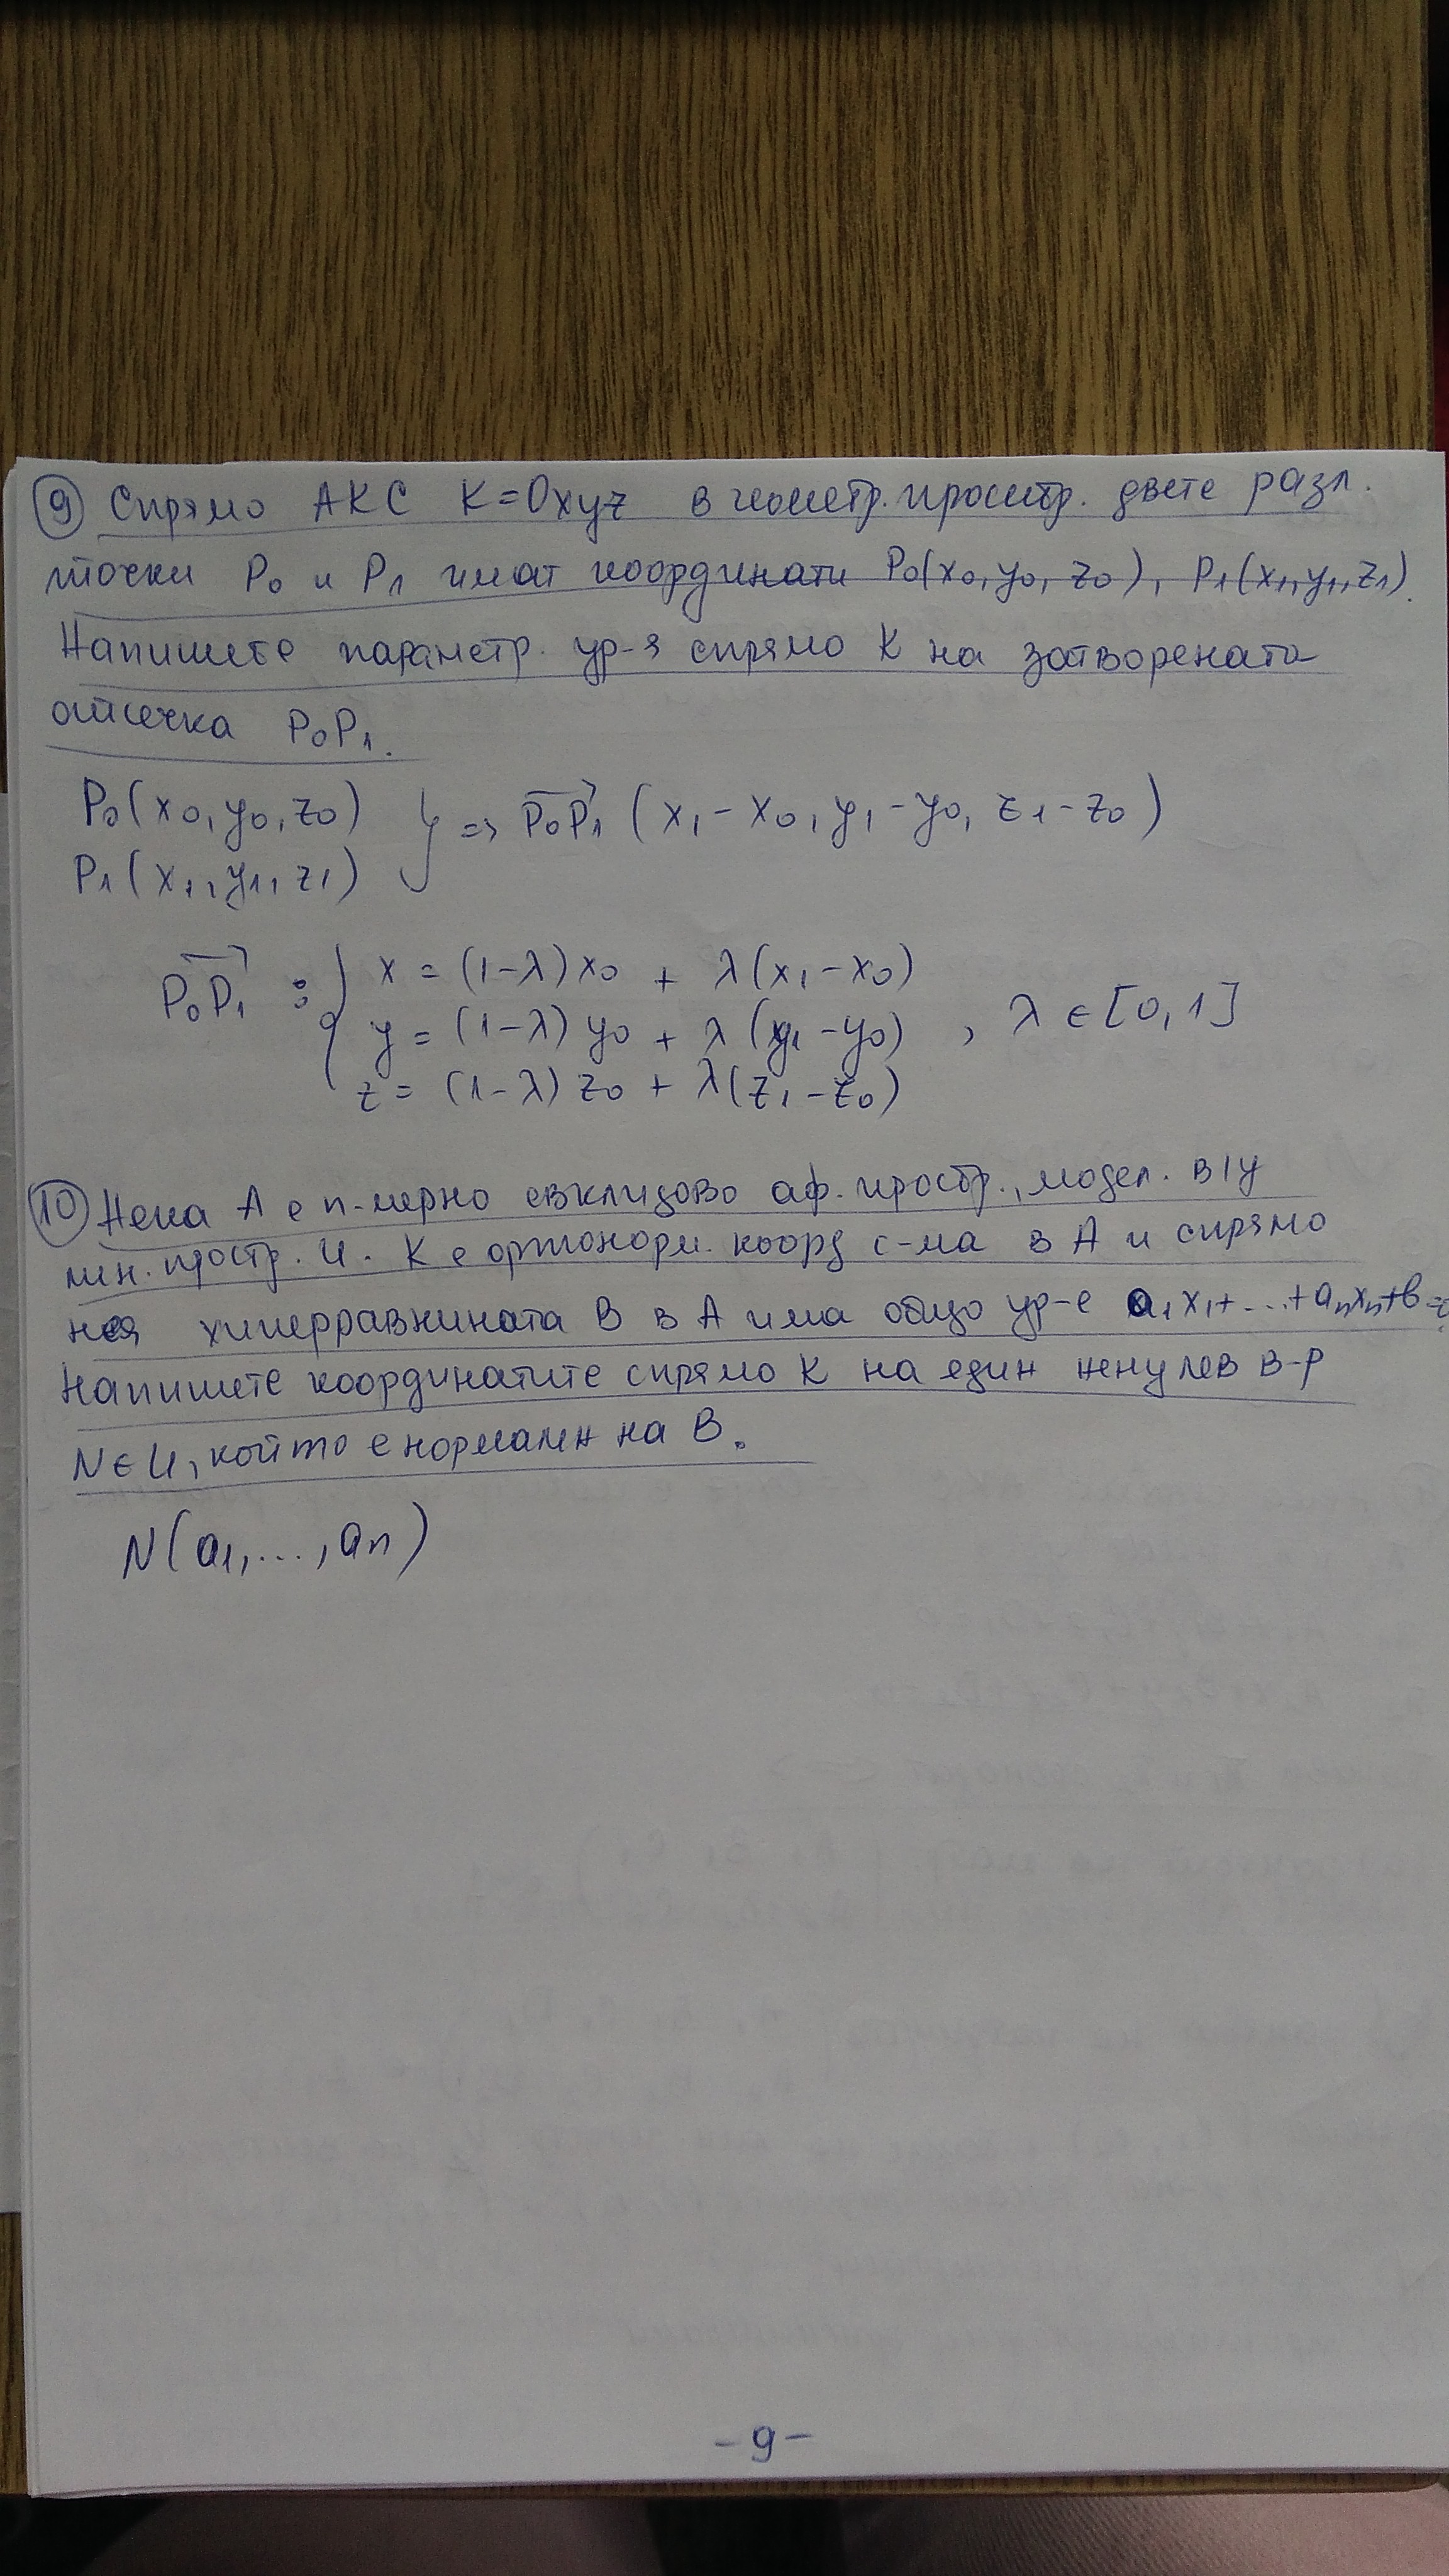 ⑨ Спрямо АКС K=Oxyz в геометр. простр. двете разл.
точки P₀ и P₁ имат координати P₀(x₀,y₀,z₀), P₁(x₁,y₁,z₁).
Напишете параметр. ур-я спрямо K на затворената
отсечка P₀P₁.
P₀(x₀,y₀,z₀)
P₁(x₁,y₁,z₁) } => P₀P₁→ (x₁-x₀, y₁-y₀, z₁-z₀)
P₀P₁→ : { x = (1-λ)x₀ + λ(x₁-x₀)
y = (1-λ)y₀ + λ(y₁-y₀) , λ∈[0,1]
z = (1-λ)z₀ + λ(z₁-z₀)
⑩ Нека A е n-мерно евклидово аф. простр., модел. в/у
лин. простр. U. K е ортонорм. коорд с-ма в A и спрямо
нея хиперравнината B в A има общо ур-е a₁x₁+...+aₙxₙ+b=0.
Напишете координатите спрямо K на един ненулев в-р
N∈U, който е нормален на B.
N(a₁,...,aₙ)
-9-